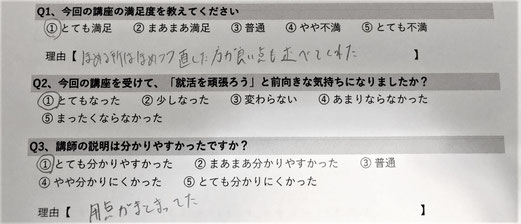 Q1、今回の講座の満足度を教えてください
①とても満足 ② まあまあ満足 ③ 普通 ④ やや不満 ⑤ とても不満
理由【 ほめる所はほめつつ直した方が良い点も述べてくれた 】
Q2、今回の講座を受けて、「就活を頑張ろう」と前向きな気持ちになりましたか?
①とてもなった ② 少しなった ③ 変わらない ④ あまりならなかった
⑤ まったくならなかった
Q3、講師の説明は分かりやすかったですか?
①とても分かりやすかった ② まあまあ分かりやすかった ③ 普通
④ やや分かりにくかった ⑤ とても分かりにくかった
理由【 用点がまとまってた 】